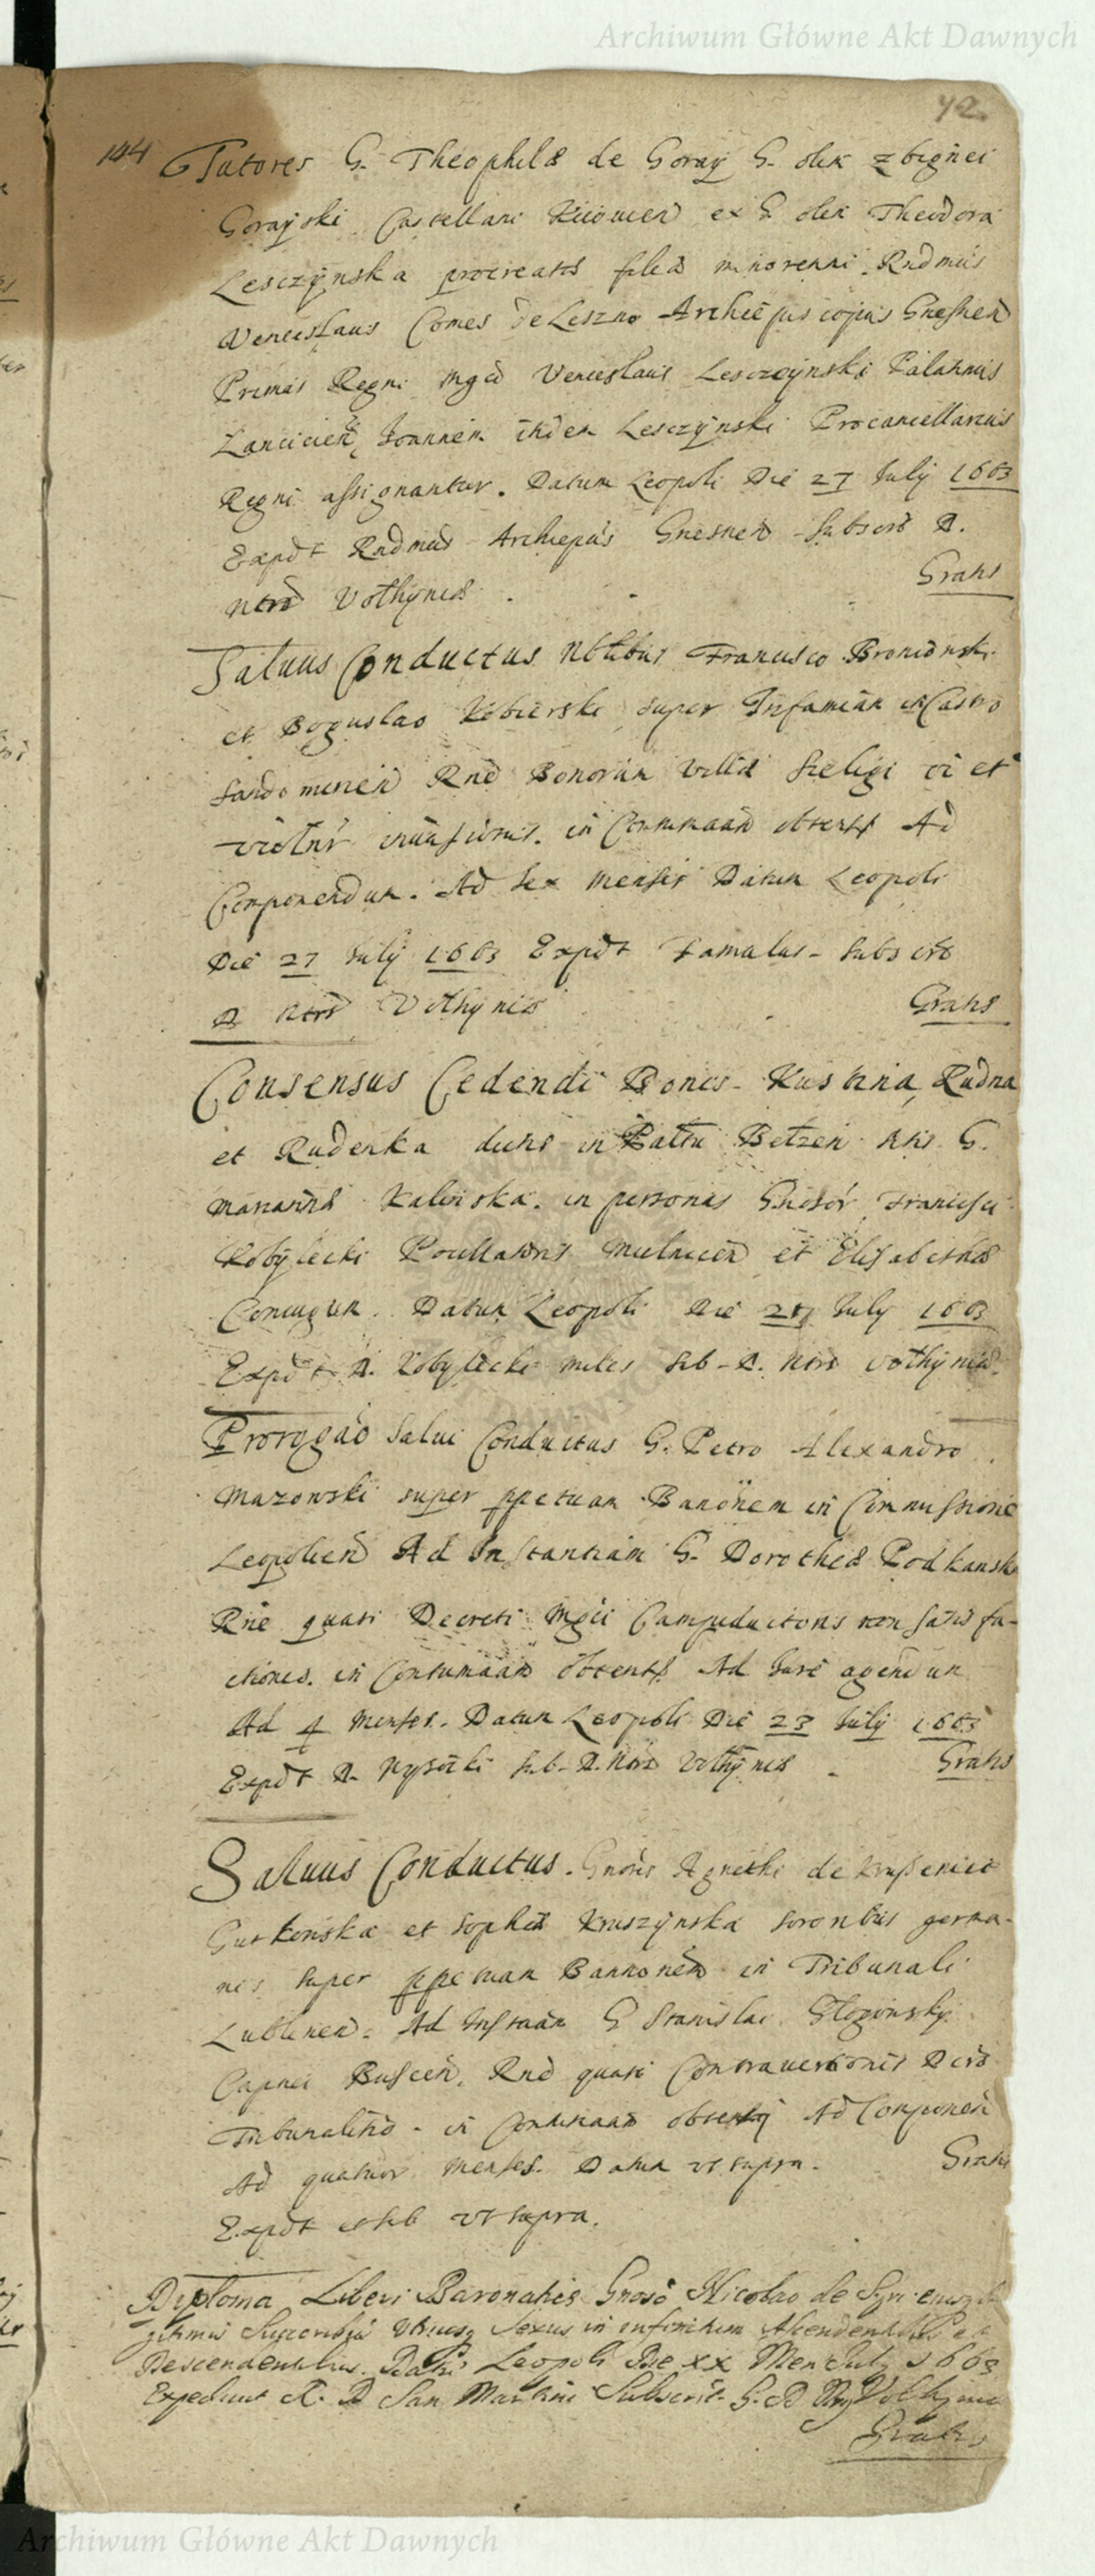 Archiwum Główne Akt Dawnych
42.
144 Tutores G. Theophilæ de Goraÿ G. olim Zbignei
Gorayski Castellani Kiiovien ex G olim Theodora
Lesczÿnska procreatæ filiæ minorenni. Rndmus
Venceslaus Comes de Leszno Archiepiscopus Gnesnen
Primas Regni Mgcus Venceslaus Lesczÿnski Palatinus
Lancicien Joannem itidem Lesczÿnski Procancellarius
Regni assignantur. Datum Leopoli Die 27 July 1663
Expdt Rndmus Archiepus Gnesnen Subscrb R.
Ntrd Vothÿnies Gratis
Saluus Conductus Nblibus Francisco Broniewski
et Boguslao Kobierski super Infamiam in Castro
Sandomirien Rne Bonorum Villæ Szeligi vi et
violtur inuasionis. in Contumaam obtentæ Ad
Componendum. Ad sex Menses Datum Leopoli
Die 27 July 1663 Expdt Famulus Subscrb
R Ntrd Vothÿnies Gratis
Consensus Cedendi Bonis Rudna
et Rudenka dictis in Palttu Betzen Ntis G.
Mariannæ Kalinska. in personas Gnosor Francisci
Kobÿlecki Pocillatoris Mielnicen et Elisabethæ
Coniugum. Datum Leopoli Die 27 July 1663
Expdt R. Kobylecki miles sub R. Ntrd Vothÿnies
Prorogao Salui Conductus G. Petro Alexandro
Mazowski super ppetuam Banonem in Commissione
Leopolien Ad Instantiam G. Dorotheæ Podkanski
Rne quasi Decreti Mgci Campiductoris non satisfa-
ctionis. in Contumaam obtentæ Ad Jure agendum
Ad 4 Menses. Datum Leopoli Die 23 July 1663
Expdt R. Wysocki sub R. Ntrd Vothÿnies Gratis
Saluus Conductus. Gnosis Agnethi de
et Sophiæ Kruszÿnska sororibus germa-
nis super ppetuam Bannonem in Tribunali
Lublinen. Ad Instaam G Stanislai
Capnei Buscen. Rne quasi Contrauentionis Decrt
Tribunalitio in Contumaam obtentæ Ad Componend
Ad quatuor Menses. Datum vt supra. Gratis
Expdt et sub vt supra.
Diploma Liberi Baronatus Gnoso Nicolao de
Sexus in infinitum et
Descendentibus. Datum Leopoli Die XX Men July 1663
Expediuit R. D San Martini Subscrit. G. D
Gratis
Archiwum Główne Akt Dawnych